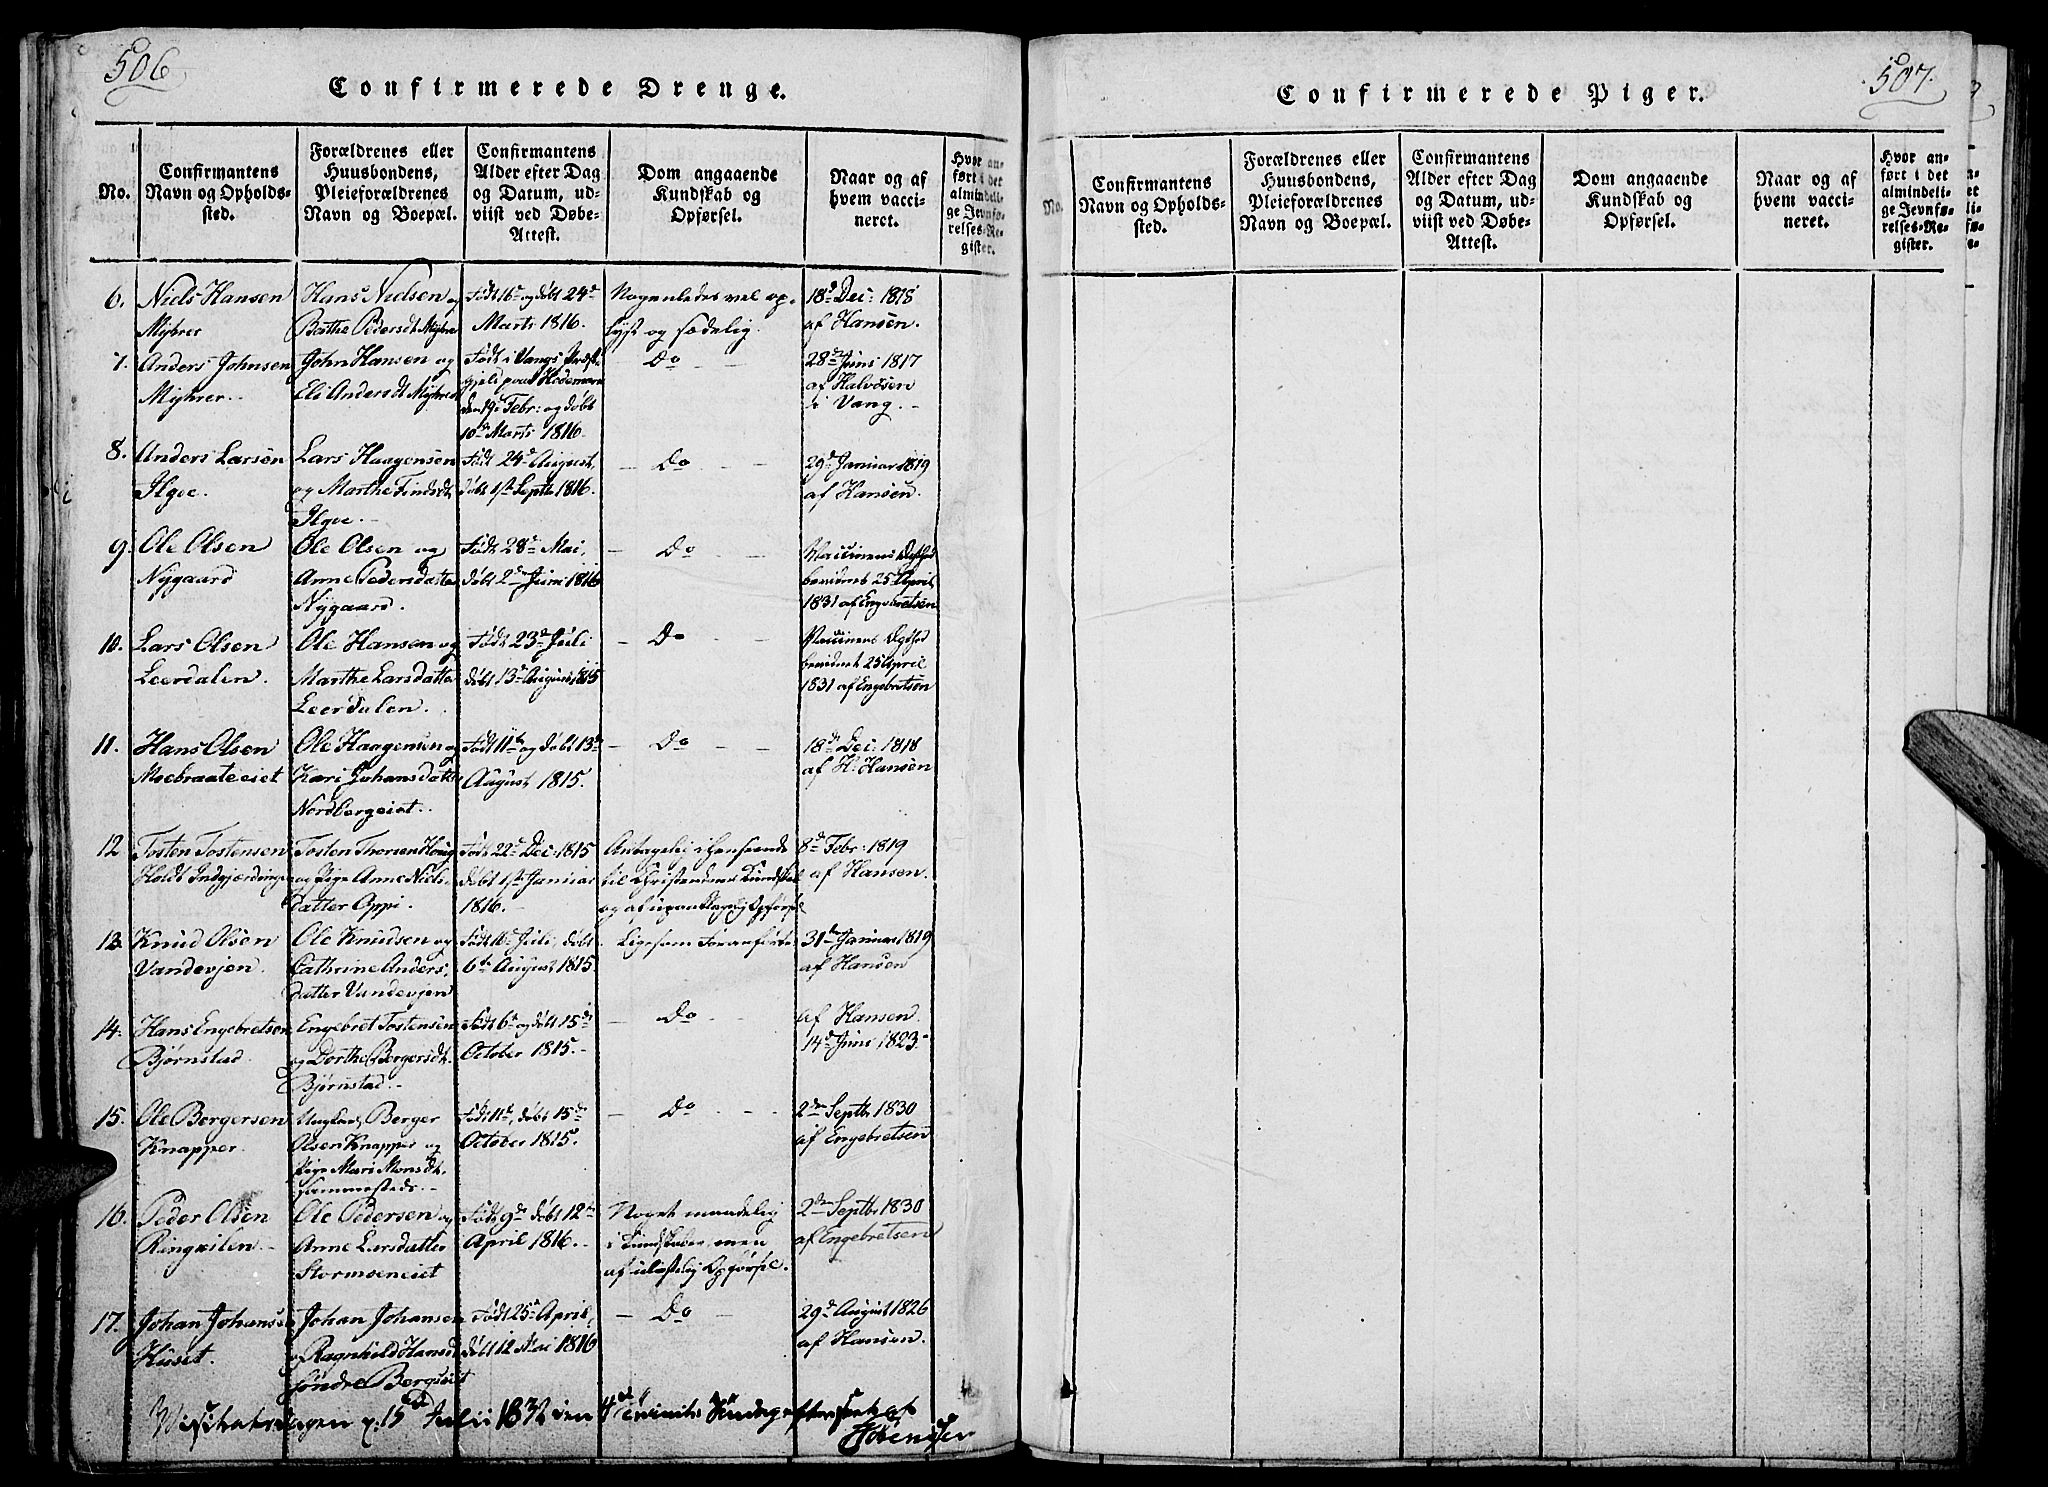 506
Confirmerede Drenge.
No.
Confirmantens
Navn og Opholds-
sted.
Forældrenes eller
Huusbondens,
Pleieforældrenes
Navn og Boepæl.
Confirmantens
Alder efter Dag
og Datum, ud-
viist ved Døbe-
Attest.
Dom angaaende
Kundskab og
Opførsel.
Naar og af
hvem vacci-
neret.
Hvor an-
ført i det
almindeli-
ge Jevnfø-
relses-Re-
gister.
6.
Niels Hansen
Myhrer
Hans Nielsen og
Berthe Pedersdt Myhrer
Født 16de og døbt 24de
Marts 1816.
Nogenledes vel op-
lyst og sædelig.
18de Dec: 1818
af Hansen.
7.
Anders Johnsen
Myhrer
John Hansen og
Eli Andersdt Myhrer
Født i Vangs Præste-
gjeld paa Hedemarken
den 19de Febr: og døbt
10de Marts 1816.
Do
28de Juni 1817
af Halvosen
i Vang.
8.
Anders Larsen
Ilgoe.
Lars Haagensen
og Marthe Findsdt
Ilgoe.
Født 24de August,
døbt 1ste Septb 1816.
Do
29de Januar 1819
af Hansen.
9.
Ole Olsen
Nygaard
Ole Olsen og
Anne Pedersdatter
Nygaard.
Født 28de Mai,
døbt 2den Juni 1816
Do
Vaccinens Ægthed
bevidnet 25de April
1831 af Engebretsen
10.
Lars Olsen
Leerdalen.
Ole Hansen og
Marthe Larsdatter
Leerdalen.
Født 23de Juli
døbt 13de August 1815
Do
Vaccinens Ægthed
bevidnet 25 April
1831 af Engebretsen
11.
Hans Olsen
Moebraateeiet
Ole Haagensen og
Kari Johansdatter
Nordbergeiet.
Født 11te og døbt 13de
August 1815.
Do
18de Dec: 1818
af H: Hansen
12
Tosten Tostensen
Holdt Indgjærdingen
Tosten Thorsen
og Pige Anne Niels-
datter Oppi.
Født 22de Dec: 1815
døbt 1ste Januar
1816.
Antagelig i Henseende
til Christendoms Kundskab
og af upaaklagelig Opførsel
8de Febr: 1819
af Hansen.
13.
Knud Olsen
Vandevjen.
Ole Knudsen og
Cathrine Anders-
datter Vandevjen
Født 16de Juli, døbt
6te August 1815.
Ligesom Foranførte
31te Januar 1819
af Hansen
14.
Hans Engebretsen
Bjørnstad.
Engebret Tostensen
og Dorthe Bergersdt.
Bjørnstad.
Født 6te og døbt 15de
October 1815.
Do
af Hansen.
14de Juni 1823.
15.
Ole Bergersen
Knapper.
Ungkarl Berger
Olsen Knapper og
Pige Mari Monsdt.
sammesteds.
Født 11te, døbt 15de
October 1815.
Do
2den Septb 1830
af Engebretsen
16.
Peder Olsen
Ringsilen.
Ole Pedersen og
Anne Larsdatter
Stormoeneiet
Født 9de døbt 12te
April 1816.
Noget maadelig
i Kundskaber, men
af ulastelig Opførsel.
2den Septb 1830
af Engebretsen
17.
Johan Johansen
Huset.
Johan Johansen
og Ragnhild Hansdt
søndre Bergseiet
Født 25de April,
døbt 12 Mai 1816
Do
29de August 1826
af Hansen.
15de Julii 1832 den 4de Trinit: Søndag
507.
Confirmerede Piger.
No.
Confirmantens
Navn og Opholds-
sted.
Forældrenes eller
Huusbondens,
Pleieforældrenes
Navn og Boepæl.
Confirmantens
Alder efter Dag
og Datum, ud-
viist ved Døbe-
Attest.
Dom angaaende
Kundskab og
Opførsel.
Naar og af
hvem vacci-
neret.
Hvor an-
ført i det
almindeli-
ge Jevnfø-
relses-Re-
gister.